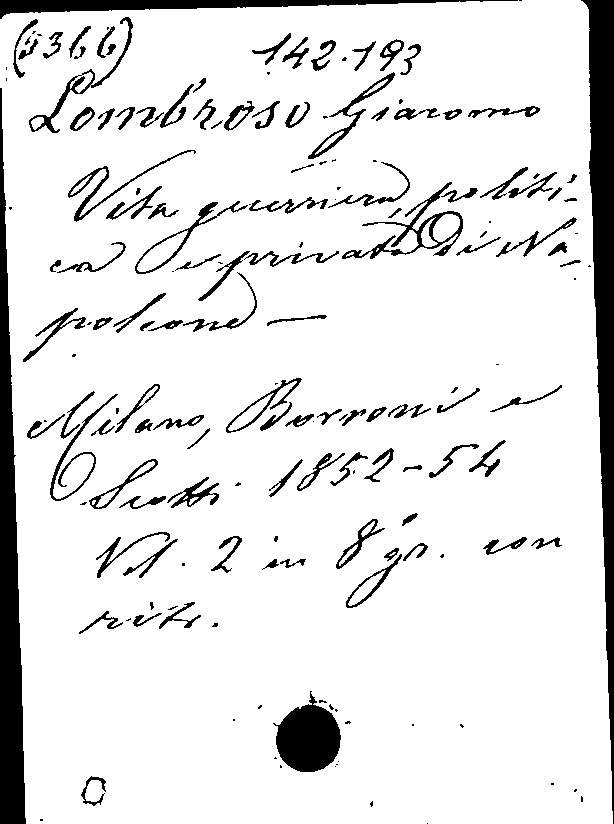 (3366) 142.193
Lombroso Giacomo
Vita guerriera, politi-
ca e privata di Na-
poleone —
Milano, Borroni e
Scotti 1852-54
Vol. 2 in 8° gr. con
ritr.